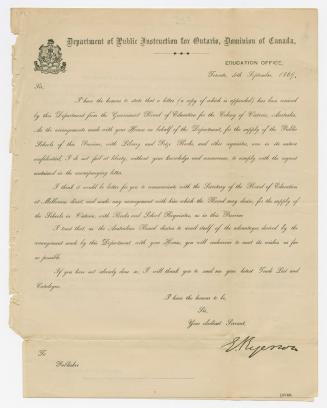 Department of Public Instruction for Ontario, Dominion of Canada,
EDUCATION OFFICE,
Toronto, 4th September, 1869.
Sir,
I have the honour to state that a letter (a copy of which is appended) has been received
by this Department from the Government Board of Education for the Colony of Victoria, Australia.
As the arrangements made with your House on behalf of the Department, for the supply of the Public
Schools of this Province, with Library and Prize Books, and other requisites, was in its nature
confidential, I do not feel at liberty, without your knowledge and concurrence, to comply with the request
contained in the accompanying letter.
I think it would be better for you to communicate with the Secretary of the Board of Education
at Melbourne direct, and make any arrangement with him which the Board may desire, for the supply of
the Schools in Victoria, with Books and School Requisites, as in this Province.
I trust that, as the Australian Board desires to avail itself of the advantages derived by the
arrangement made by this Department with your House, you will endeavour to meet its wishes as far
as possible.
If you have not already done so, I will thank you to send me your latest Trade List and
Catalogue.
I have the honour to be,
Sir,
Your obedient Servant,
E. Ryerson
To
Publisher